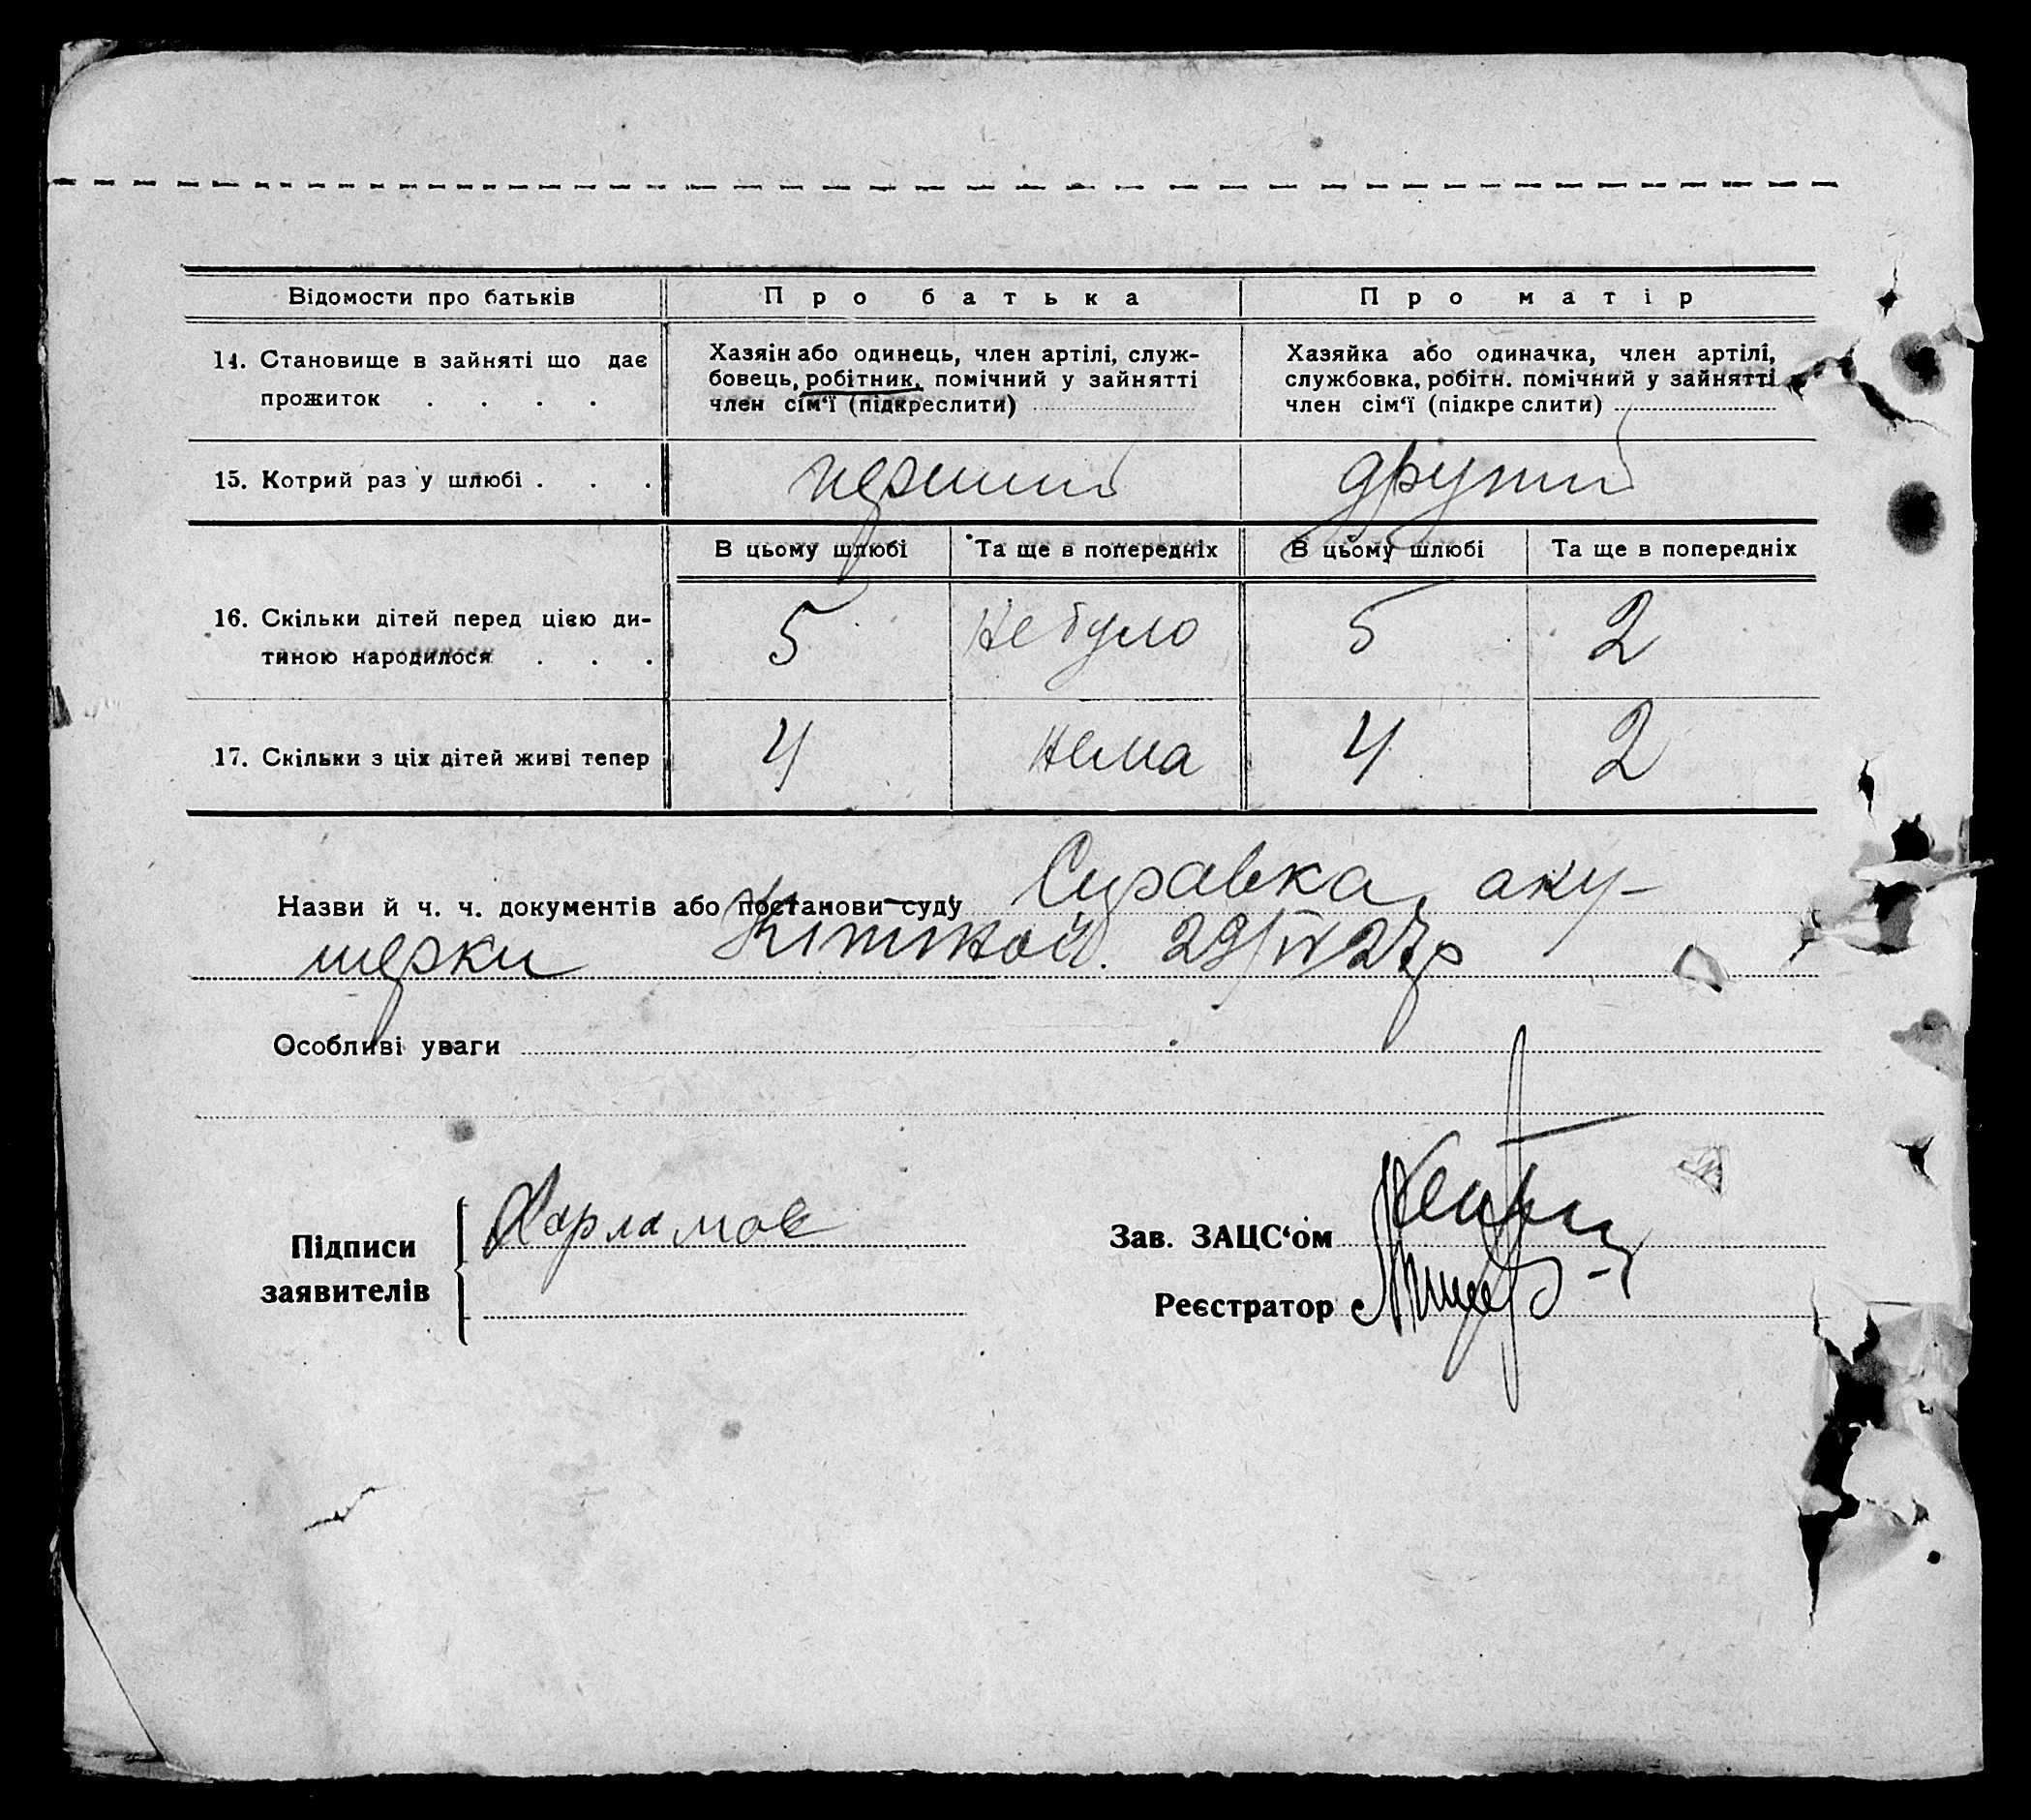 Відомости про батьків Про батька Про матір
14. Становище в зайняті що дає
прожиток . . . .
Хазяїн або одинець, член артілі, служ-
бовець, робітник, помічний у зайнятті
член сім'ї (підкреслити)
Хазяйка або одиначка, член артілі,
службовка, робітн. помічний у зайнятті
член сім'ї (підкреслити)
15. Котрий раз у шлюбі . . . перший другий
В цьому шлюбі Та ще в попередніх В цьому шлюбі Та ще в попередніх
16. Скільки дітей перед цією ди-
тиною народилося . . .
5 не було 5 2
17. Скільки з ціх дітей живі тепер 4 нема 4 2
Назви й ч. ч. документів або постанови суду Справка аку-
шерки 29/IV 27р
Особливі уваги
Підписи
заявителів
Харламов
Зав. ЗАЦС'ом
Реєстратор